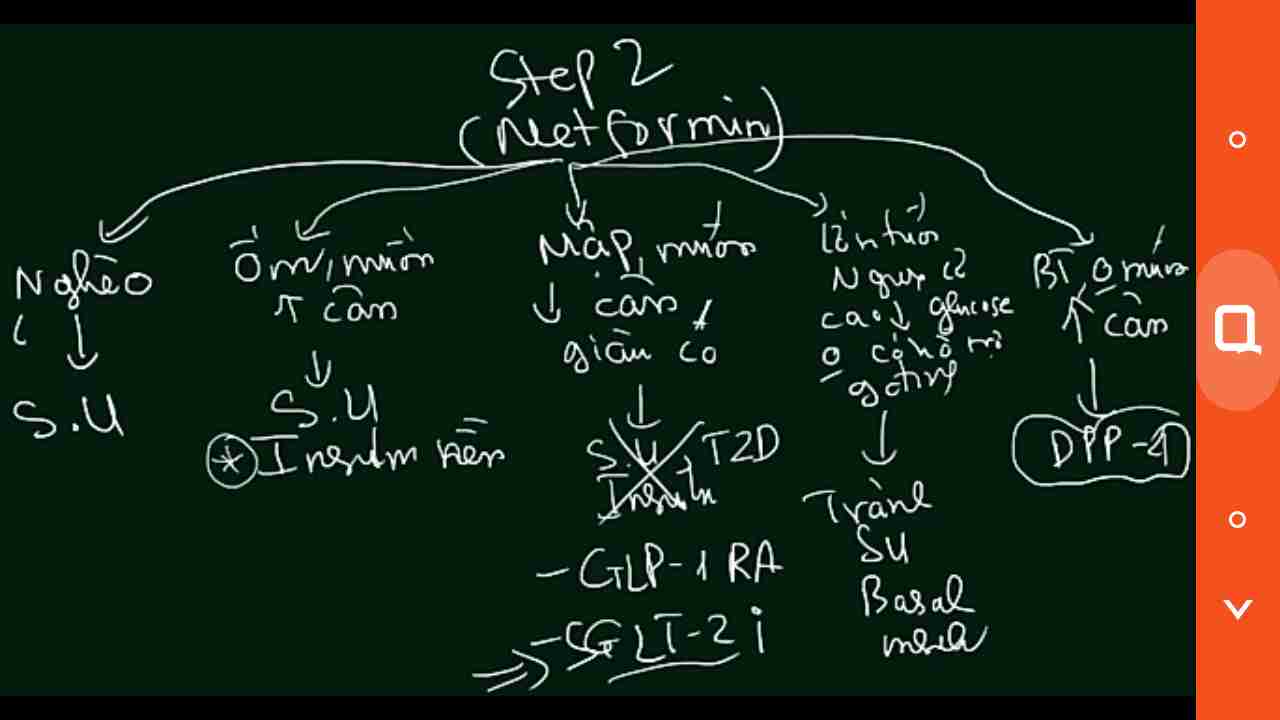 Step 2
(Metformin)
Nghèo
S.U
Ốm, muốn
↑ cân
S.U
* Insulin nền
Mập, muốn
↓ cân
giàu có
S.U, T2D
Insulin
- GLP-1 RA
⇒ - SGLT-2 i
lớn tuổi
Nguy cơ
cao ↓ glucose
0 có hỗ trợ
Tránh
SU
Basal
BT, 0 muốn
↑ cân
DPP-4